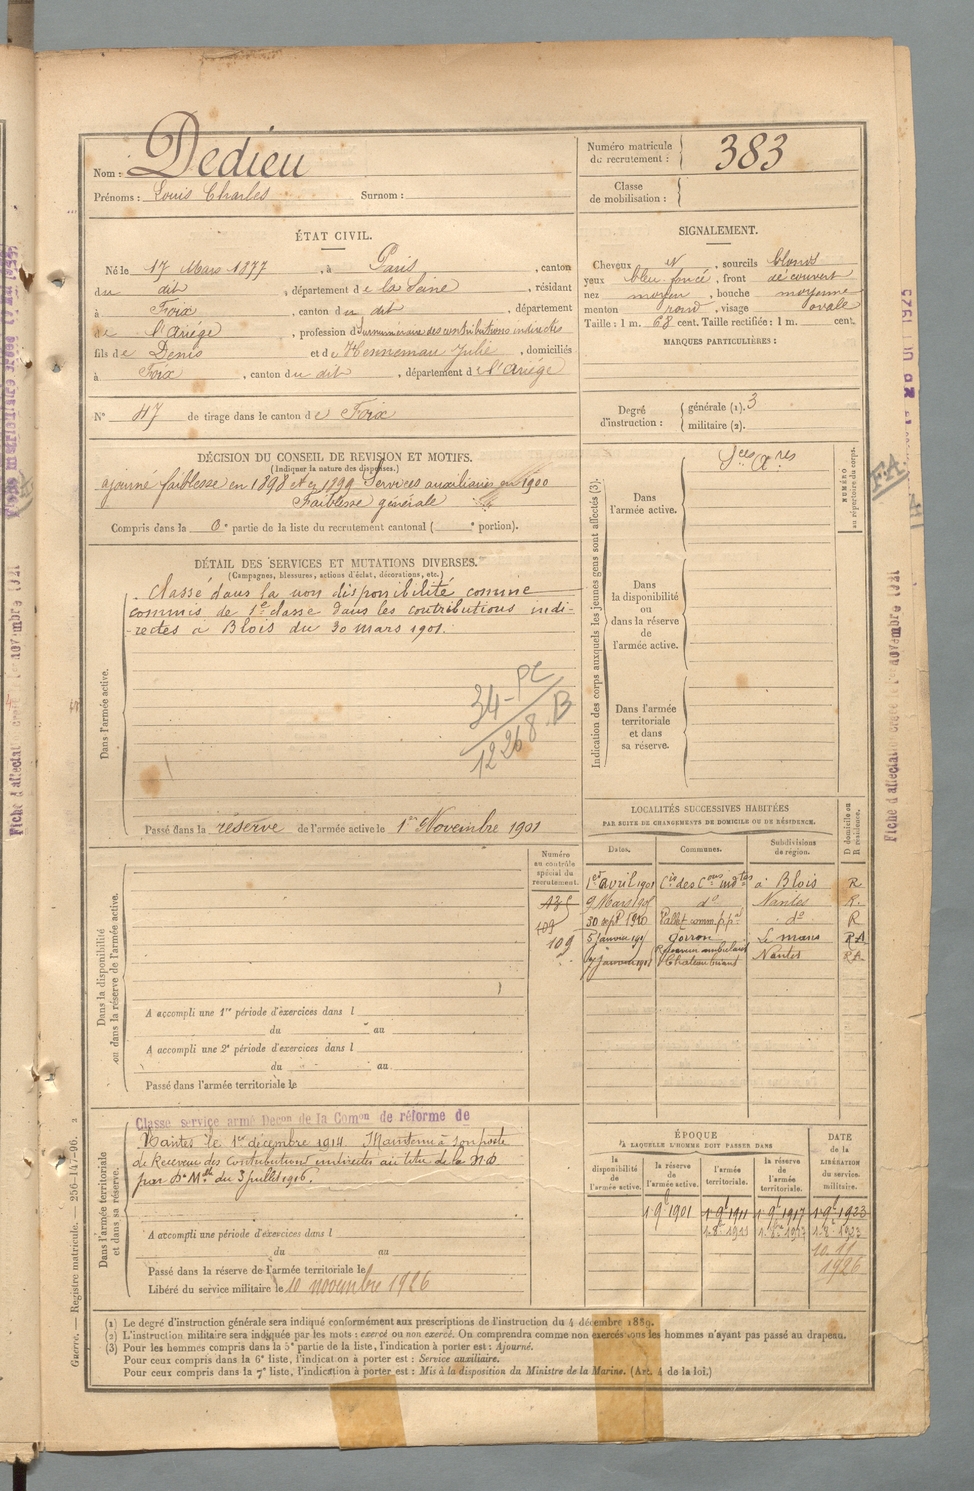 Nom : Dedieu
Prénoms : Louis Charles Surnom :
Numéro matricule du recrutement : 383
Classe de mobilisation :
ÉTAT CIVIL.
Né le 17 Mars 1877, à Paris, canton
du dit, département de la Seine, résidant
à Foix, canton du dit, département
de l'Ariège, profession d Surnuméraire des contributions indirectes
fils de Denis et de Henneman Julie, domiciliés
à Foix, canton du dit, département de l'Ariège
N° 47 de tirage dans le canton de Foix
SIGNALEMENT.
Cheveux N, sourcils blonds
yeux bleu foncé, front découvert
nez moyen, bouche moyenne
menton rond, visage ovale
Taille : 1 m. 68 cent. Taille rectifiée : 1 m. cent.
MARQUES PARTICULIÈRES :
Degré d'instruction : générale (1). 3
militaire (2).
DÉCISION DU CONSEIL DE REVISION ET MOTIFS.
(Indiquer la nature des dispenses.)
ajourné faiblesse en 1898 et en 1899 Services auxiliaires en 1900
Faiblesse générale
Compris dans la 6e partie de la liste du recrutement cantonal ( e portion).
DÉTAIL DES SERVICES ET MUTATIONS DIVERSES.
(Campagnes, blessures, actions d'éclat, décorations, etc.)
Dans l'armée active.
Classé dans la non disponibilité comme
commis de 1e classe dans les contributions indi-
-rectes à Blois du 30 mars 1901.
34-PC
12268.B
Passé dans la réserve de l'armée active le 1er Novembre 1901
Indication des corps auxquels les jeunes gens sont affectés (3).
NUMÉRO au répertoire du corps.
Dans l'armée active.
Sces Aires
Dans la disponibilité ou dans la réserve de l'armée active.
Dans l'armée territoriale et dans sa réserve.
F.A.
LOCALITÉS SUCCESSIVES HABITÉES
PAR SUITE DE CHANGEMENTS DE DOMICILE OU DE RÉSIDENCE.
Dates. Communes. Subdivisions de région. D domicile ou R résidence.
1er avril 1901 Cis des Cons indtes à Blois R
9 Mars 1905 do Nantes R.
30 sept 1910 Pallet comm. ppal do R
5 janvier Gorron Le mans RA
7 janvier Receveur ambulant Chateaubriant Nantes RA
Dans la disponibilité ou dans la réserve de l'armée active.
Numéro au contrôle spécial du recrutement.
109
109
A accompli une 1re période d'exercices dans l
du au
A accompli une 2e période d'exercices dans l
du au
Passé dans l'armée territoriale le
Dans l'armée territoriale et dans sa réserve.
Classé service armé Decon de la Comon de réforme de
Nantes le 1er décembre 1914 Maintenu à son poste
de Receveur des contributions indirectes au titre de la ND
par Don Melle du 3 juillet 1916.
A accompli une période d'exercices dans l
du au
Passé dans la réserve de l'armée territoriale le
Libéré du service militaire le 10 novembre 1926
ÉPOQUE
A LAQUELLE L'HOMME DOIT PASSER DANS
la disponibilité de l'armée active. la réserve de l'armée active. l'armée territoriale. la réserve de l'armée territoriale.
DATE de la LIBÉRATION du service militaire.
1 9e 1901 1 9e 1911 1 9e 1917 1 9e 1923
10.11 1926
(1) Le degré d'instruction générale sera indiqué conformément aux prescriptions de l'instruction du 4 décembre 1889.
(2) L'instruction militaire sera indiquée par les mots : exercé ou non exercé. On comprendra comme non exercés tous les hommes n'ayant pas passé au drapeau.
(3) Pour les hommes compris dans la 5e partie de la liste, l'indication à porter est : Ajourné.
Pour ceux compris dans la 6e liste, l'indication à porter est : Service auxiliaire.
Pour ceux compris dans la 7e liste, l'indication à porter est : Mis à la disposition du Ministre de la Marine. (Art. 4 de la loi.)
Guerre. — Registre matricule. — 256-147-96.